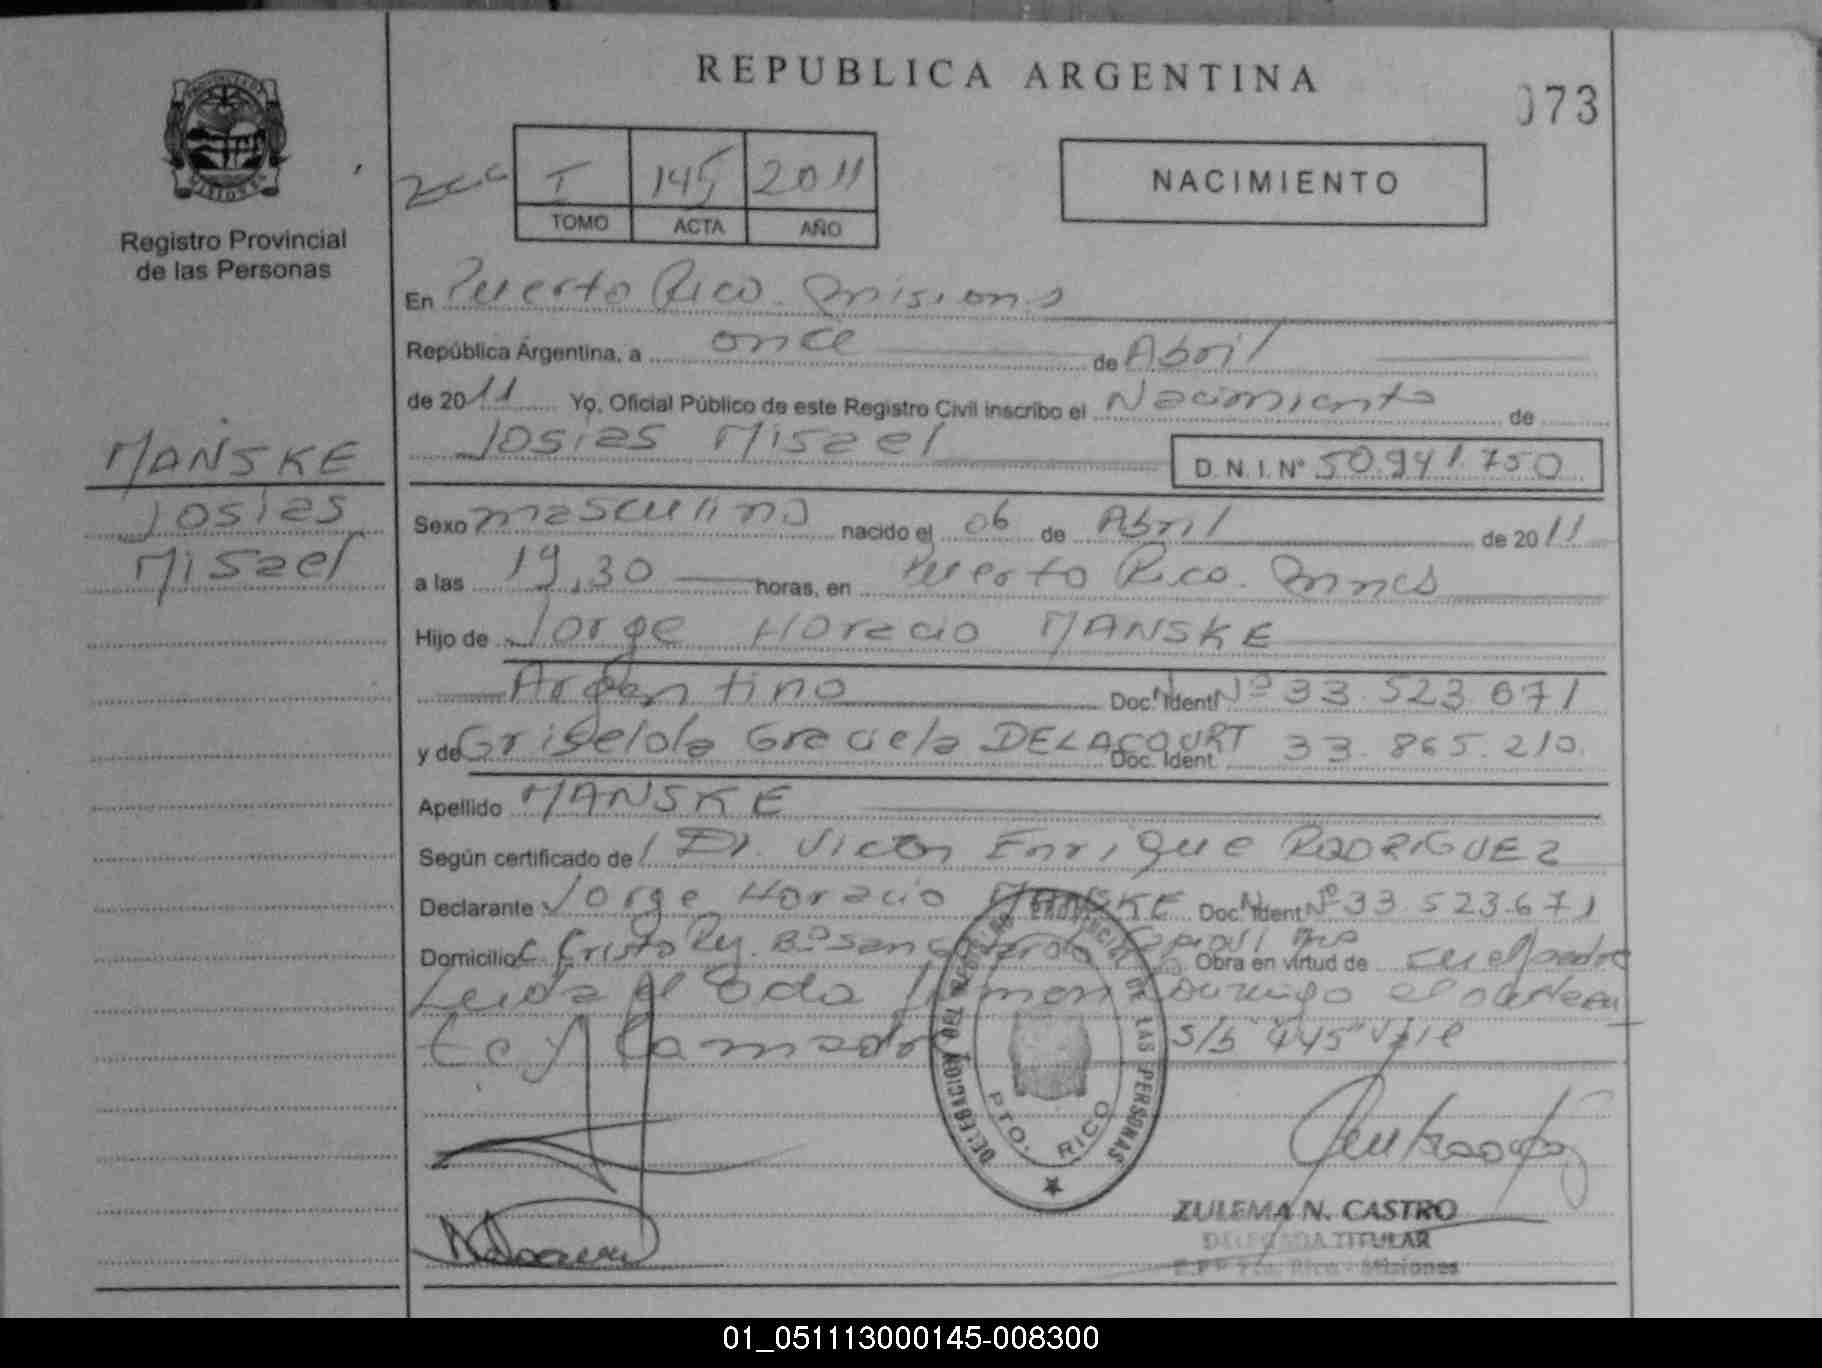 REPUBLICA ARGENTINA
073
PROVINCIA DE
MISIONES
Registro Provincial
de las Personas
I 145 2011
TOMO ACTA AÑO
NACIMIENTO
En Puerto Rico. Misiones
República Argentina, a once de Abril
de 2011 Yo, Oficial Público de este Registro Civil inscribo el Nacimiento de
Josias Misael D.N.I.Nº 50.941.750
MANSKE
Josias
Misael
Sexo masculino nacido el 06 de Abril de 2011
a las 19,30 horas, en Puerto Rico. Mnes
Hijo de Jorge Horacio MANSKE
Argentino Doc. Ident Nº 33.523.671
y de Griselda Graciela DELACOURT Doc. Ident. 33.865.210.
Apellido MANSKE
Según certificado de Dr. Victor Enrique RODRIGUEZ
Declarante Jorge Horacio MANSKE Doc. Ident Nº 33.523.671
Domicilio C. Cristo Rey. Bº San Capiovi Mnes Obra en virtud de ser el padre
Leida el acta firman el
te y la madre s/b "445" Vale
DELEGACION REGISTRO PROVINCIAL DE LAS PERSONAS
PTO. RICO
ZULEMA N. CASTRO
DELEGADA TITULAR
R.P.P Pto. Rico - Misiones
01_051113000145-008300